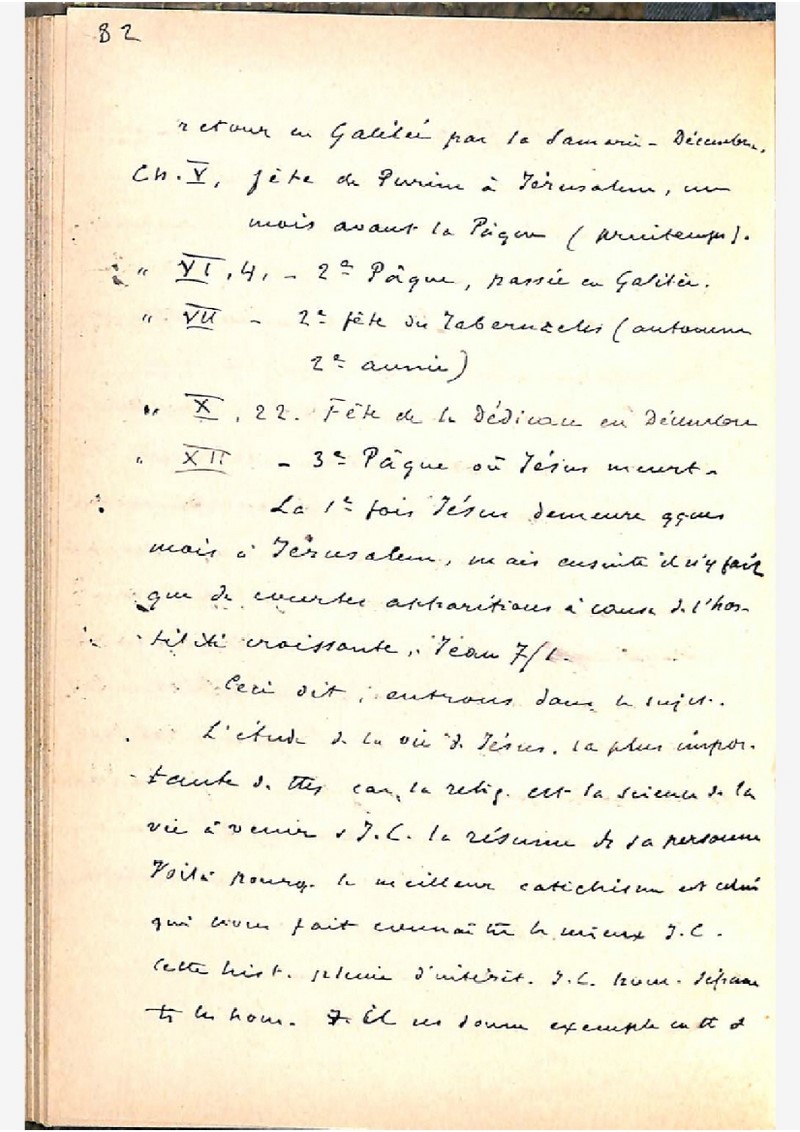 82
retour en Galilée par la Samarie - Décembre.
Ch. V, fête de Purim à Jérusalem, un
mois avant la Pâque (printemps).
" VI, 4, - 2e Pâque, passée en Galilée.
" VII - 2e fête des Tabernacles (automne
2e année)
" X, 22. Fête de la Dédicace en Décembre
" XII - 3e Pâque où Jésus meurt -
La 1e fois Jésus demeure qques
mois à Jérusalem, mais ensuite il n'y fait
que de courtes apparitions à cause de l'hos-
tilité croissante, Jean 7/1.
Ceci dit, entrons dans le sujet.
L'étude de la vie de Jésus, la plus impor-
tante de ttes car la relig. est la science de la
vie à venir & J.C. la résume ds sa personne
Voilà pourq. le meilleur catéchisme est celui
qui nous fait connaître le mieux J.C.
Cette hist. pleine d'intérêt. J.C. hom.
ts les hom. Il ns donne exemple en tt